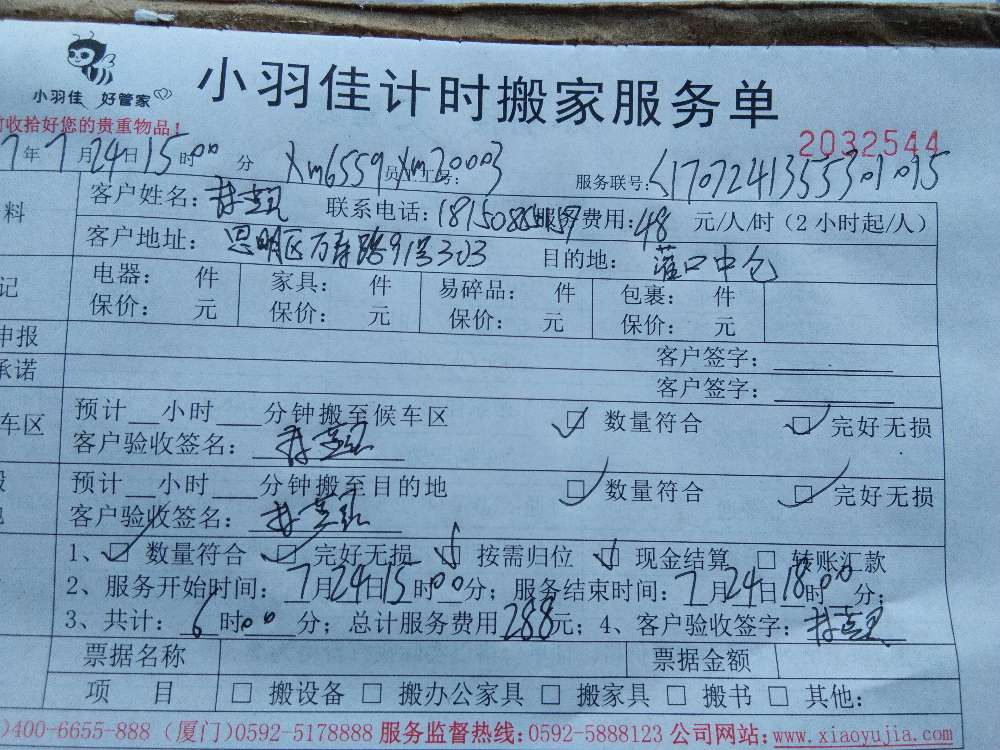 小羽佳 好管家
小羽佳计时搬家服务单
收拾好您的贵重物品!
2032544
7年7月24日15时00分 Xm6559 员工号: Xm20003 服务联号:
料 客户姓名: 联系电话: 服务费用:48元/人/时(2小时起/人)
客户地址: 思明区万寿路91号303 目的地: 灌口中仓
记 电器: 件 家具: 件 易碎品: 件 包裹: 件
保价: 元 保价: 元 保价: 元 保价: 元
申报 客户签字:
承诺 客户签字:
车区 预计__小时___分钟搬至候车区 数量符合 完好无损
客户验收签名:
预计__小时___分钟搬至目的地 数量符合 完好无损
客户验收签名:
1、数量符合 完好无损 按需归位 现金结算 转账汇款
2、服务开始时间:7月24日15时00分;服务结束时间:7月24日18时00分;
3、共计:6时00分;总计服务费用288元;4、客户验收签字:
票据名称 票据金额
项 目 搬设备 搬办公家具 搬家具 搬书 其他:
)400-6655-888 (厦门)0592-5178888 服务监督热线:0592-5888123 公司网站:www.xiaoyujia.com